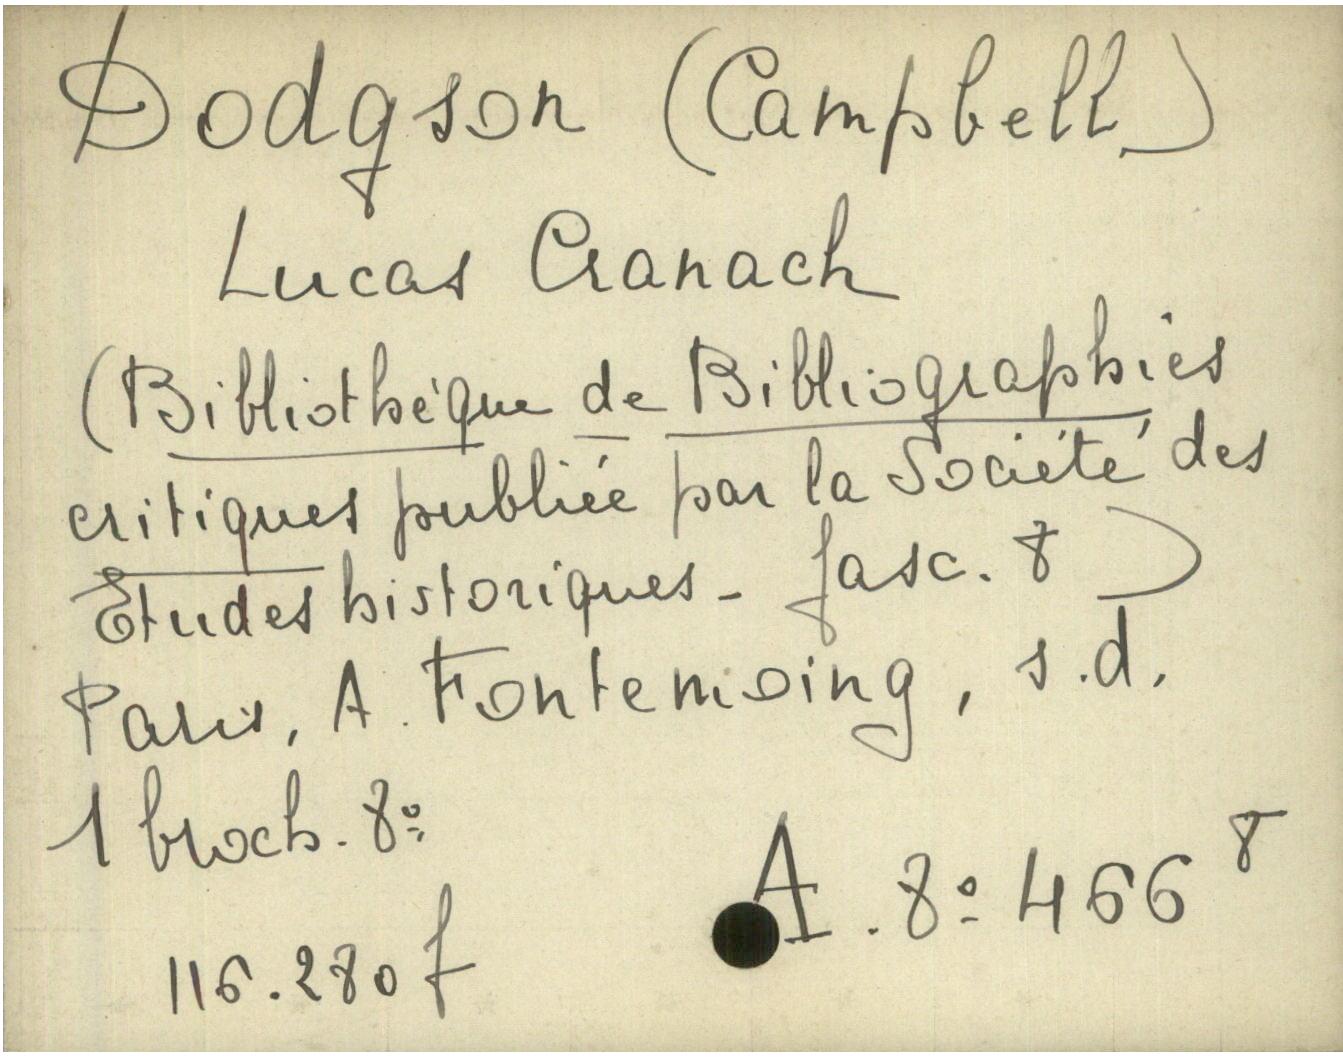 Dodgson (Campbell)
Lucas Cranach
(Bibliothèque de Bibliographies
critiques publiée par la Société des
Etudes historiques - fasc. 8)
Paris, A. Fontemoing, s.d.
1 broch. 8º
A. 8º 466 8
116.280 f